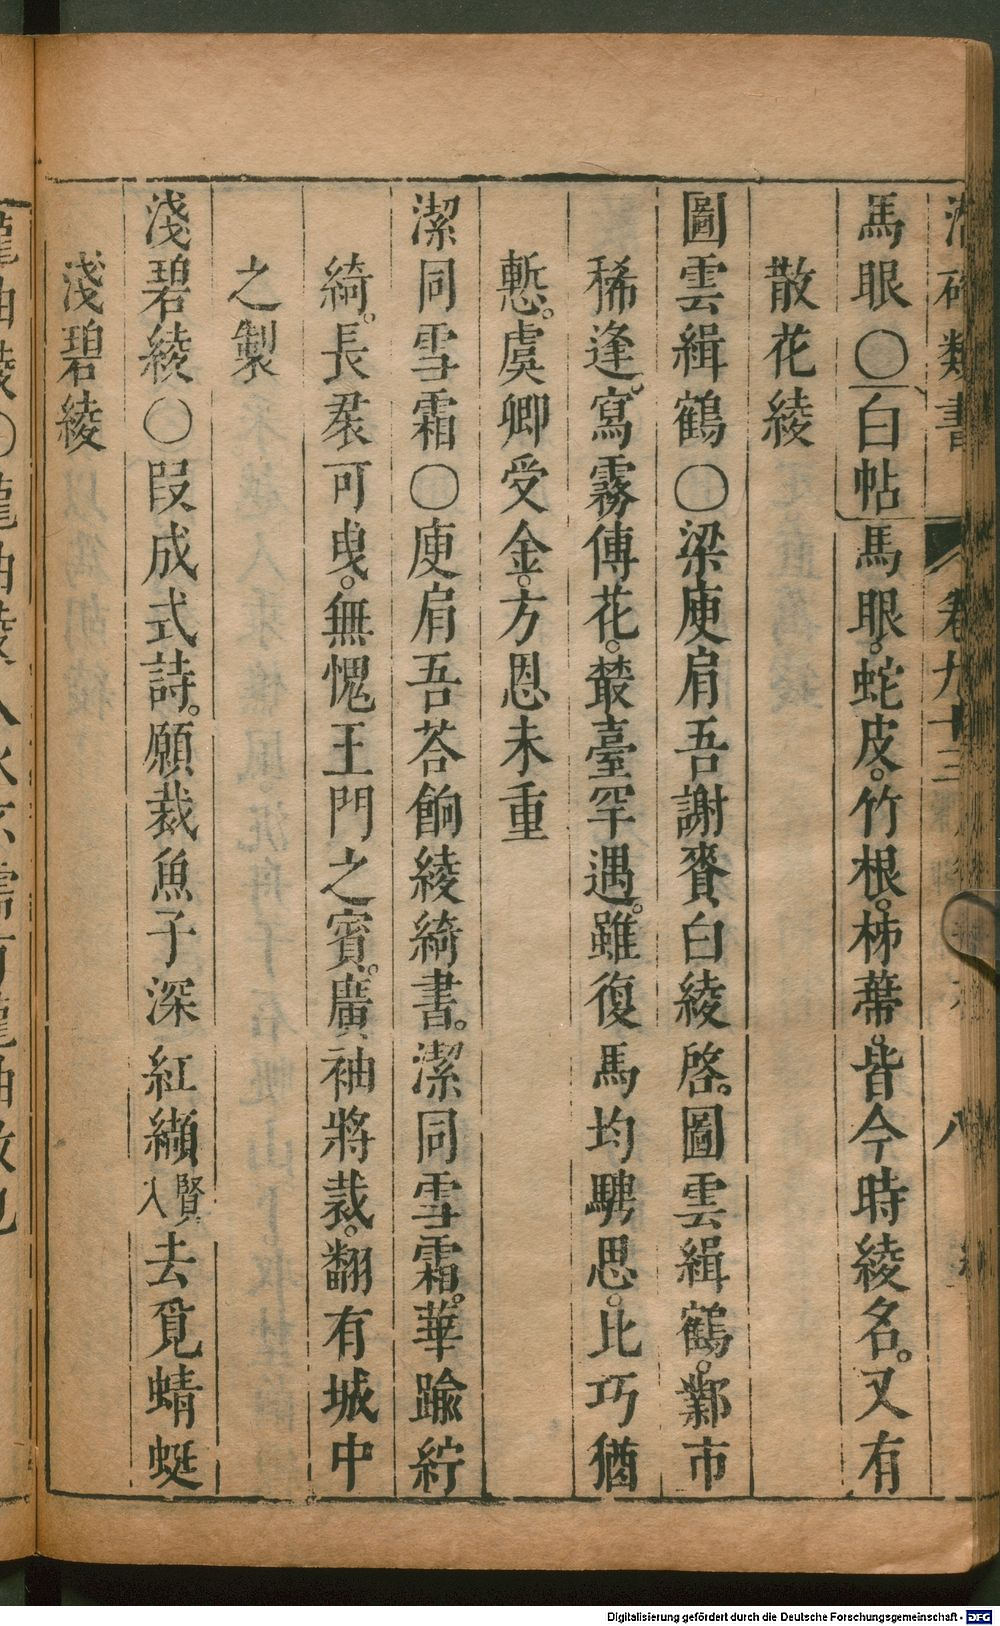 類書　卷九十三　八
馬眼〇白帖馬眼。蛇皮。竹根。柿蔕。皆今時綾名。又有
散花綾
圖雲緝鶴〇梁庾肩吾謝賚白綾啓。圖雲緝鶴。鄴市
稀逢。寫霧傳花。叢臺罕遇。雖復馬均騁思。比巧猶
慙。虞卿受金。方恩未重
潔同雪霜〇庾肩吾荅餉綾綺書。潔同雪霜。華踰紵
綺。長裠可曳。無愧王門之賓。廣袖將裁。翻有城中
之製
淺碧綾〇叚成式詩。願裁魚子深紅纈賢入去覓蜻蜓
淺碧綾
Digitalisierung gefördert durch die Deutsche Forschungsgemeinschaft - DFG